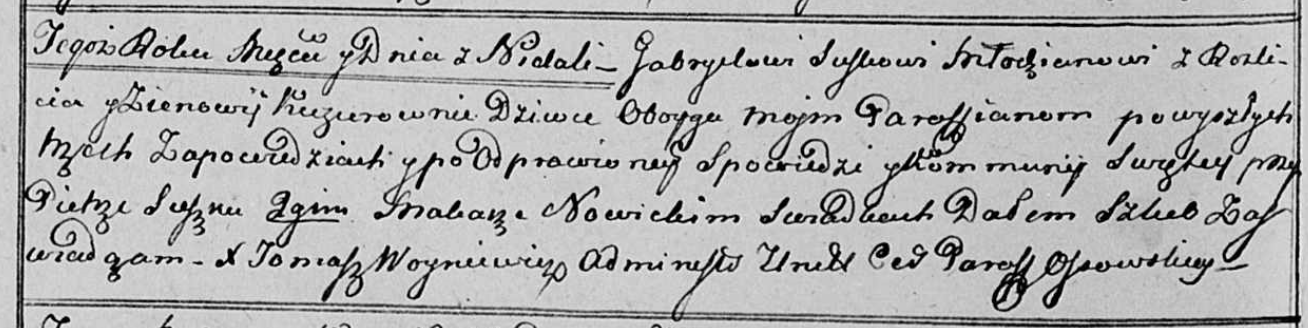 Tegoż Roku Męca y Dnia z Nidali_ Gabryelowi Suszkowi Młodzianowi z Rozli_
cia y Zienowij Kuzurownie Dziwce Oboyga mojm Paroffianom powyszłych
trzech Zapowiedziach y po Odprawioney Spowiedzi y Kommunij Swętey przy
Pietrze Suszku Zgim Makarze Nowickim Swiadkach Dałem Szlub Zaś
wiadczam - X Tomasz Woyniewicz Administr Unick Cer Paroff Ossowskiey_